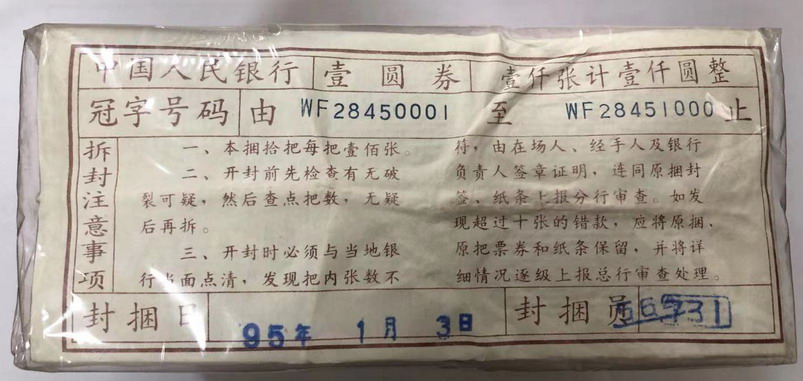 中国人民银行 壹圆券 壹仟张计壹仟圆整
冠字号码 由 WF28450001 至 WF28451000 止
拆封注意事项
一、本捆拾把每把壹佰张。
二、开封前先检查有无破
裂可疑，然后查点把数，无疑
后再拆。
三、开封时必须与当地银
行当面点清，发现把内张数不
待，由在场人、经手人及银行
负责人签章证明，连同原捆封
签、纸条上报分行审查。如发
现超过十张的错款，应将原捆、
原把票券和纸条保留，并将详
细情况逐级上报总行审查处理。
封捆日 95年 1月 3日 封捆员